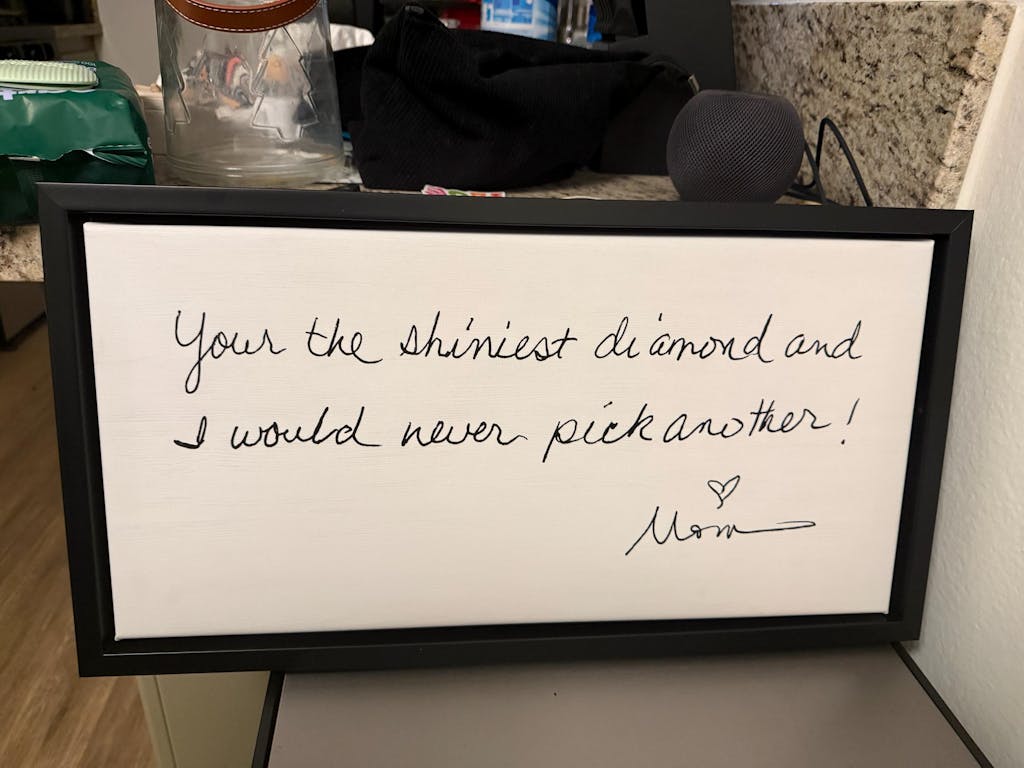 Your the shiniest diamond and
I would never pick another!
Mom